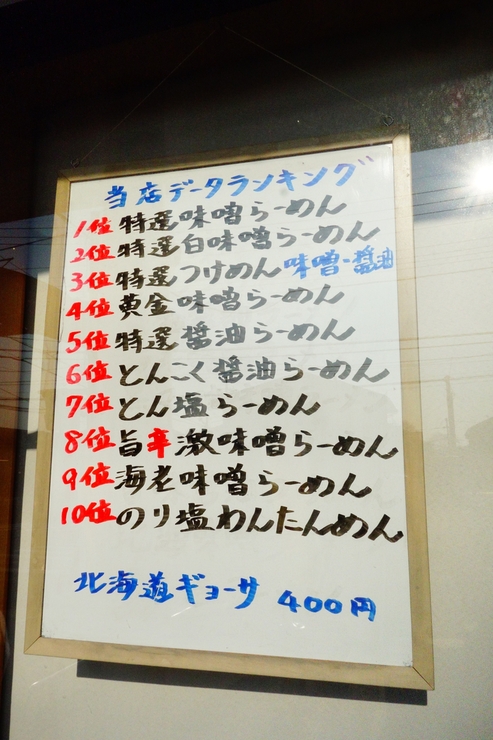 当店データランキング
1位 特選味噌らーめん
2位 特選白味噌らーめん
3位 特選つけめん 味噌・醤油
4位 黄金味噌らーめん
5位 特選醤油らーめん
6位 とんこく醤油らーめん
7位 とん塩らーめん
8位 旨辛激味噌らーめん
9位 海老味噌らーめん
10位 のり塩わんたんめん
北海道ギョーサ 400円